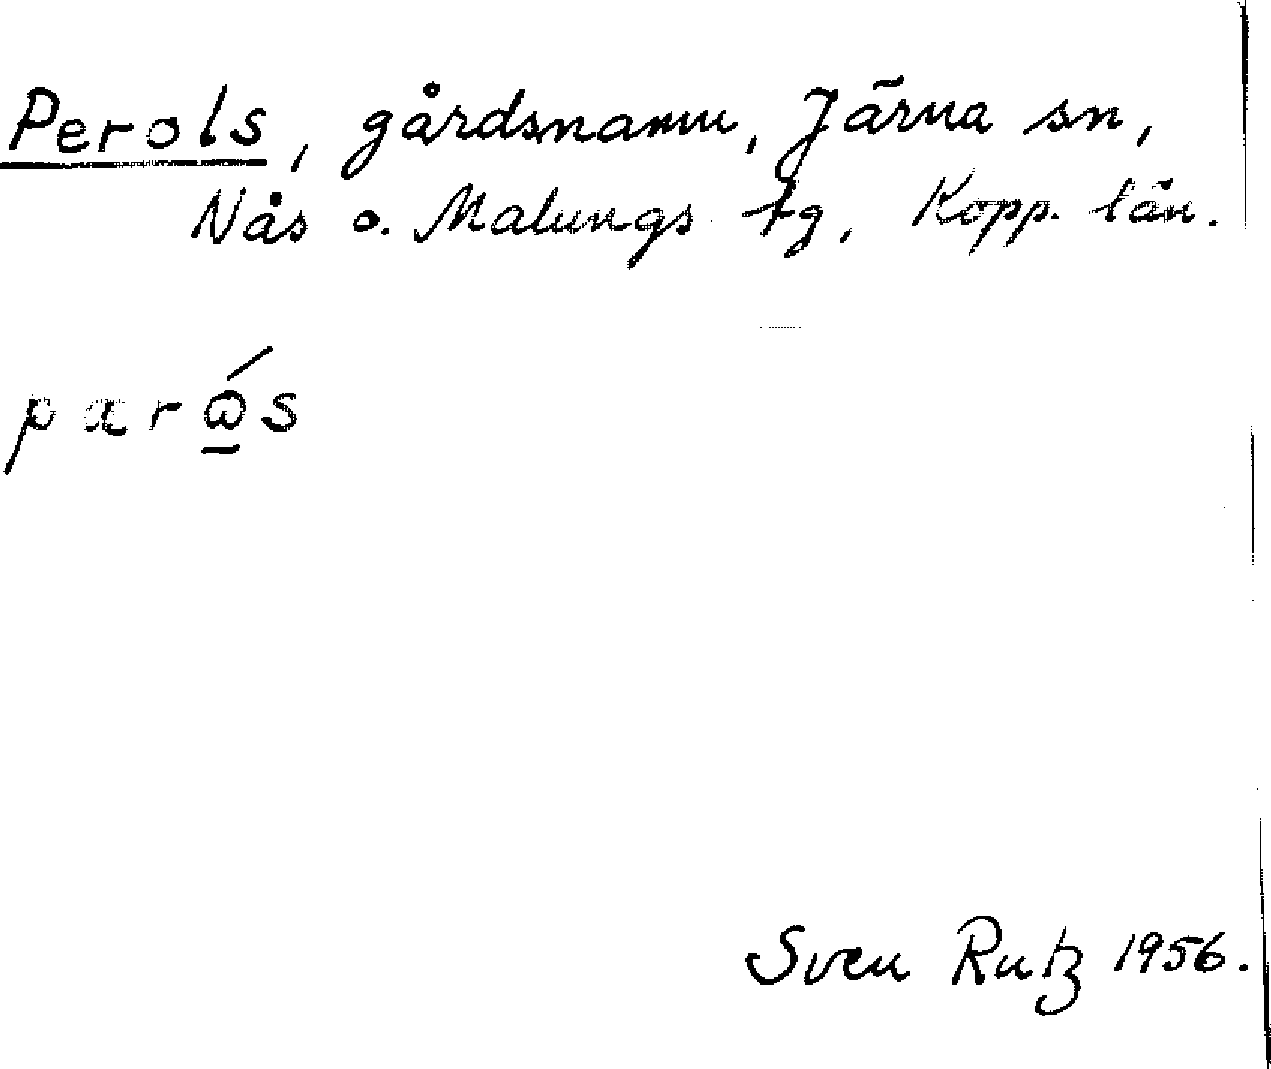 Perols, gårdsnamn, Järna sn,
Nås o. Malungs tg, Kopp. län.
Sven Rutz 1956.